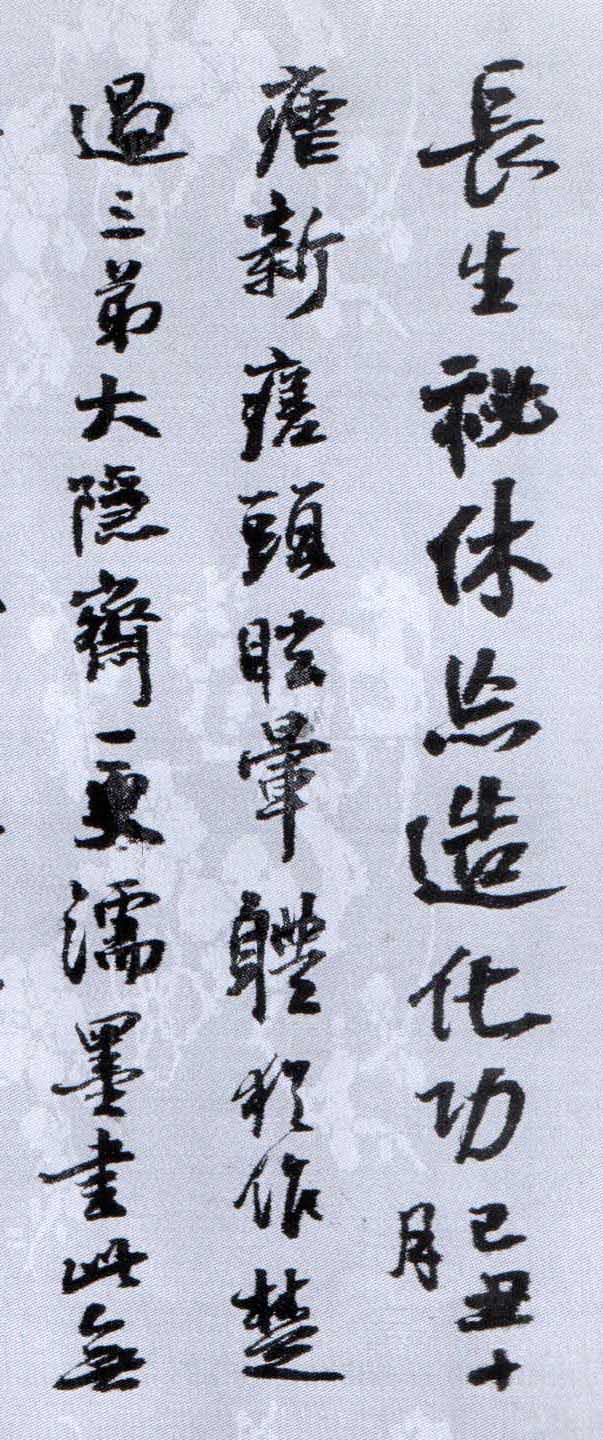 長生祕休造化功己丑十
月
瘧新瘥頭眩暈體猶作楚
過三弟大隱齋更濡墨書此無